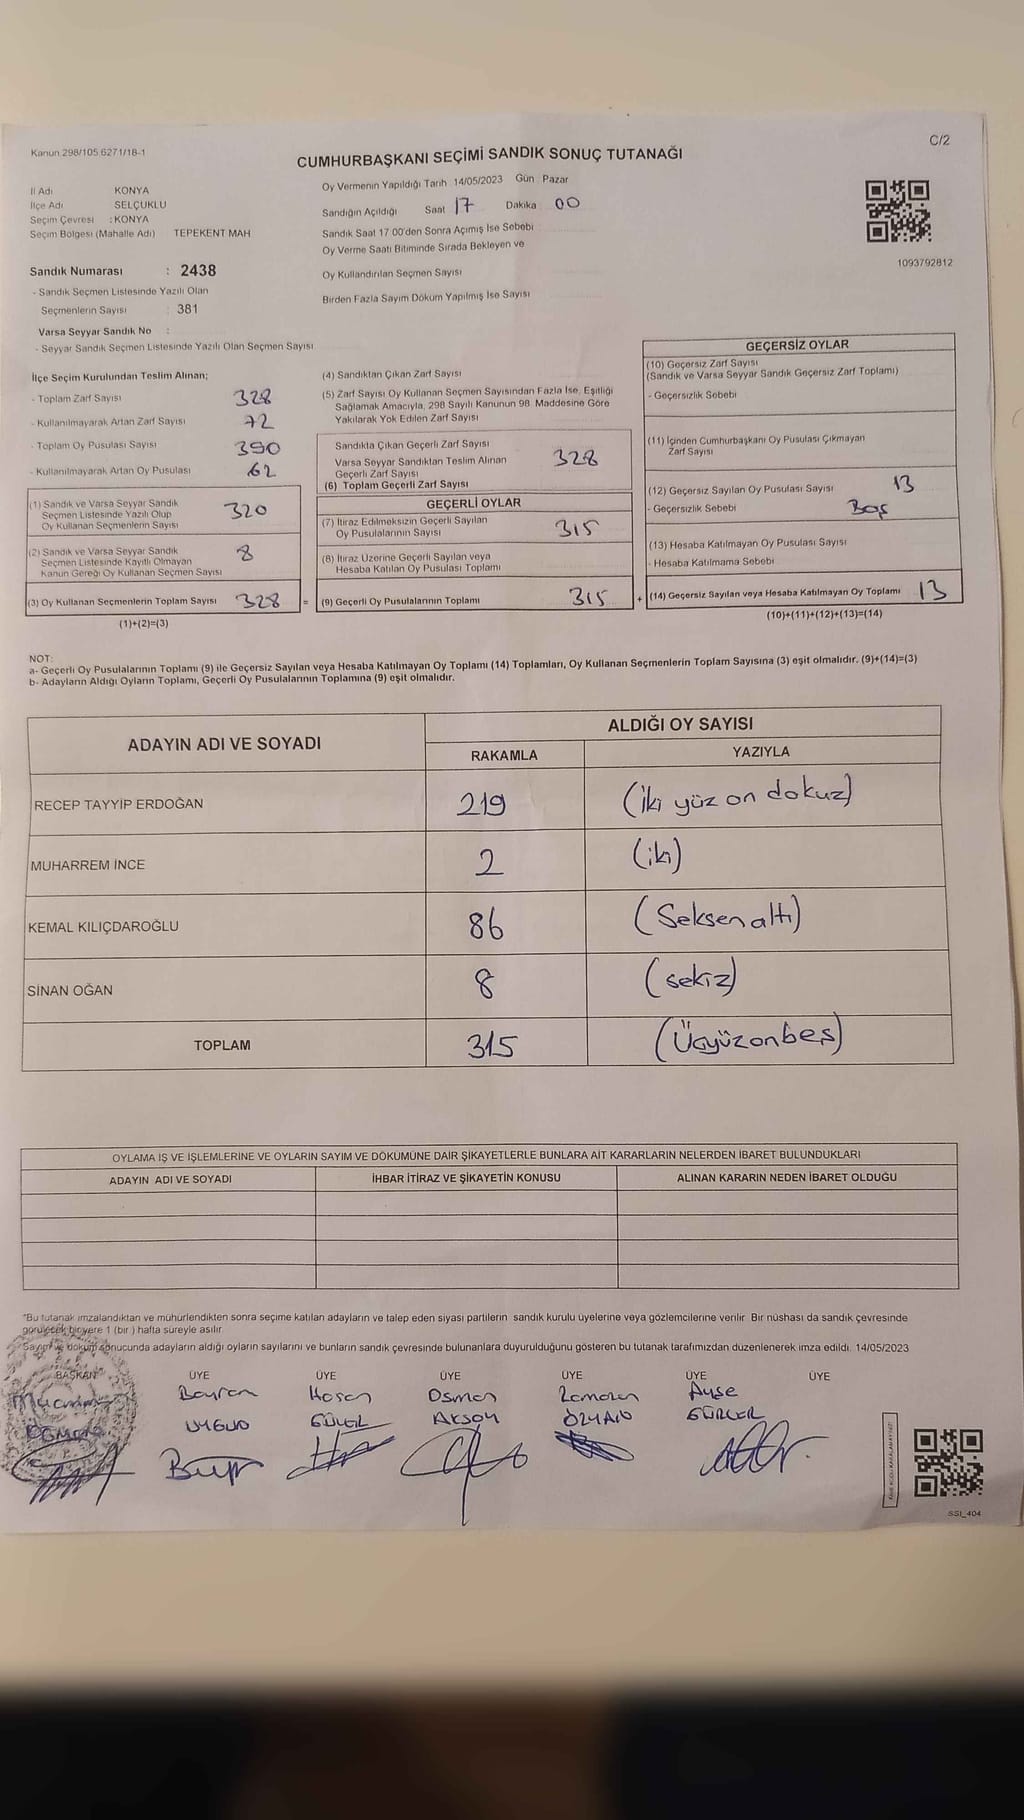 Kanun 298/105 6271/18-1
C/2
CUMHURBAŞKANI SEÇİMİ SANDIK SONUÇ TUTANAĞI
İl Adı KONYA
İlçe Adı SELÇUKLU
Seçim Çevresi : KONYA
Seçim Bölgesi (Mahalle Adı) TEPEKENT MAH
Oy Vermenin Yapıldığı Tarih 14/05/2023 Gün Pazar
Sandığın Açıldığı Saat 17 Dakika 00
Sandık Saat 17 00'den Sonra Açımış İse Sebebi
Oy Verme Saati Bitiminde Sırada Bekleyen ve
Oy Kullandırılan Seçmen Sayısı
Birden Fazla Sayım Döküm Yapılmış İse Sayısı
1093792812
Sandık Numarası : 2438
- Sandık Seçmen Listesinde Yazılı Olan
Seçmenlerin Sayısı : 381
Varsa Seyyar Sandık No :
- Seyyar Sandık Seçmen Listesinde Yazılı Olan Seçmen Sayısı
İlçe Seçim Kurulundan Teslim Alınan;
- Toplam Zarf Sayısı 328
- Kullanılmayarak Artan Zarf Sayısı 72
- Toplam Oy Pusulası Sayısı 390
- Kullanılmayarak Artan Oy Pusulası 62
(1) Sandık ve Varsa Seyyar Sandık
Seçmen Listesinde Yazılı Olup
Oy Kullanan Seçmenlerin Sayısı 320
(2) Sandık ve Varsa Seyyar Sandık
Seçmen Listesinde Kayıtlı Olmayan
Kanun Gereği Oy Kullanan Seçmen Sayısı 8
(3) Oy Kullanan Seçmenlerin Toplam Sayısı 328
(1)+(2)=(3)
(4) Sandıktan Çıkan Zarf Sayısı
(5) Zarf Sayısı Oy Kullanan Seçmen Sayısından Fazla İse, Eşitliği
Sağlamak Amacıyla, 298 Sayılı Kanunun 98. Maddesine Göre
Yakılarak Yok Edilen Zarf Sayısı
Sandıkta Çıkan Geçerli Zarf Sayısı
Varsa Seyyar Sandıktan Teslim Alınan
Geçerli Zarf Sayısı
(6) Toplam Geçerli Zarf Sayısı 328
GEÇERLİ OYLAR
(7) İtiraz Edilmeksizin Geçerli Sayılan
Oy Pusulalarının Sayısı 315
(8) İtiraz Üzerine Geçerli Sayılan veya
Hesaba Katılan Oy Pusulası Toplamı
= (9) Geçerli Oy Pusulalarının Toplamı 315
GEÇERSİZ OYLAR
(10) Geçersiz Zarf Sayısı
(Sandık ve Varsa Seyyar Sandık Geçersiz Zarf Toplamı)
- Geçersizlik Sebebi
(11) İçinden Cumhurbaşkanı Oy Pusulası Çıkmayan
Zarf Sayısı
(12) Geçersiz Sayılan Oy Pusulası Sayısı 13
- Geçersizlik Sebebi Boş
(13) Hesaba Katılmayan Oy Pusulası Sayısı
- Hesaba Katılmama Sebebi
+ (14) Geçersiz Sayılan veya Hesaba Katılmayan Oy Toplamı 13
(10)+(11)+(12)+(13)=(14)
NOT:
a- Geçerli Oy Pusulalarının Toplamı (9) ile Geçersiz Sayılan veya Hesaba Katılmayan Oy Toplamı (14) Toplamları, Oy Kullanan Seçmenlerin Toplam Sayısına (3) eşit olmalıdır. (9)+(14)=(3)
b- Adayların Aldığı Oyların Toplamı, Geçerli Oy Pusulalarının Toplamına (9) eşit olmalıdır.
ADAYIN ADI VE SOYADI ALDIĞI OY SAYISI
RAKAMLA YAZIYLA
RECEP TAYYİP ERDOĞAN 219 (İki yüz on dokuz)
MUHARREM İNCE 2 (iki)
KEMAL KILIÇDAROĞLU 86 (Seksen altı)
SİNAN OĞAN 8 (sekiz)
TOPLAM 315 (Üçyüzonbeş)
OYLAMA İŞ VE İŞLEMLERİNE VE OYLARIN SAYIM VE DÖKÜMÜNE DAİR ŞİKAYETLERLE BUNLARA AİT KARARLARIN NELERDEN İBARET BULUNDUKLARI
ADAYIN ADI VE SOYADI İHBAR İTİRAZ VE ŞİKAYETİN KONUSU ALINAN KARARIN NEDEN İBARET OLDUĞU
*Bu tutanak imzalandıktan ve mühürlendikten sonra seçime katılan adayların ve talep eden siyasi partilerin sandık kurulu üyelerine veya gözlemcilerine verilir. Bir nüshası da sandık çevresinde
görülecek bir yere 1 (bir ) hafta süreyle asılır
Sayım ve döküm sonucunda adayların aldığı oyların sayılarını ve bunların sandık çevresinde bulunanlara duyurulduğunu gösteren bu tutanak tarafımızdan düzenlenerek imza edildi. 14/05/2023
BAŞKAN ÜYE ÜYE ÜYE ÜYE ÜYE ÜYE
Bayram Hasan Osman Ramazan Ayşe
UYGUN GÜLEL AKSOY ÖZKAN GÜRLER
SSI_404